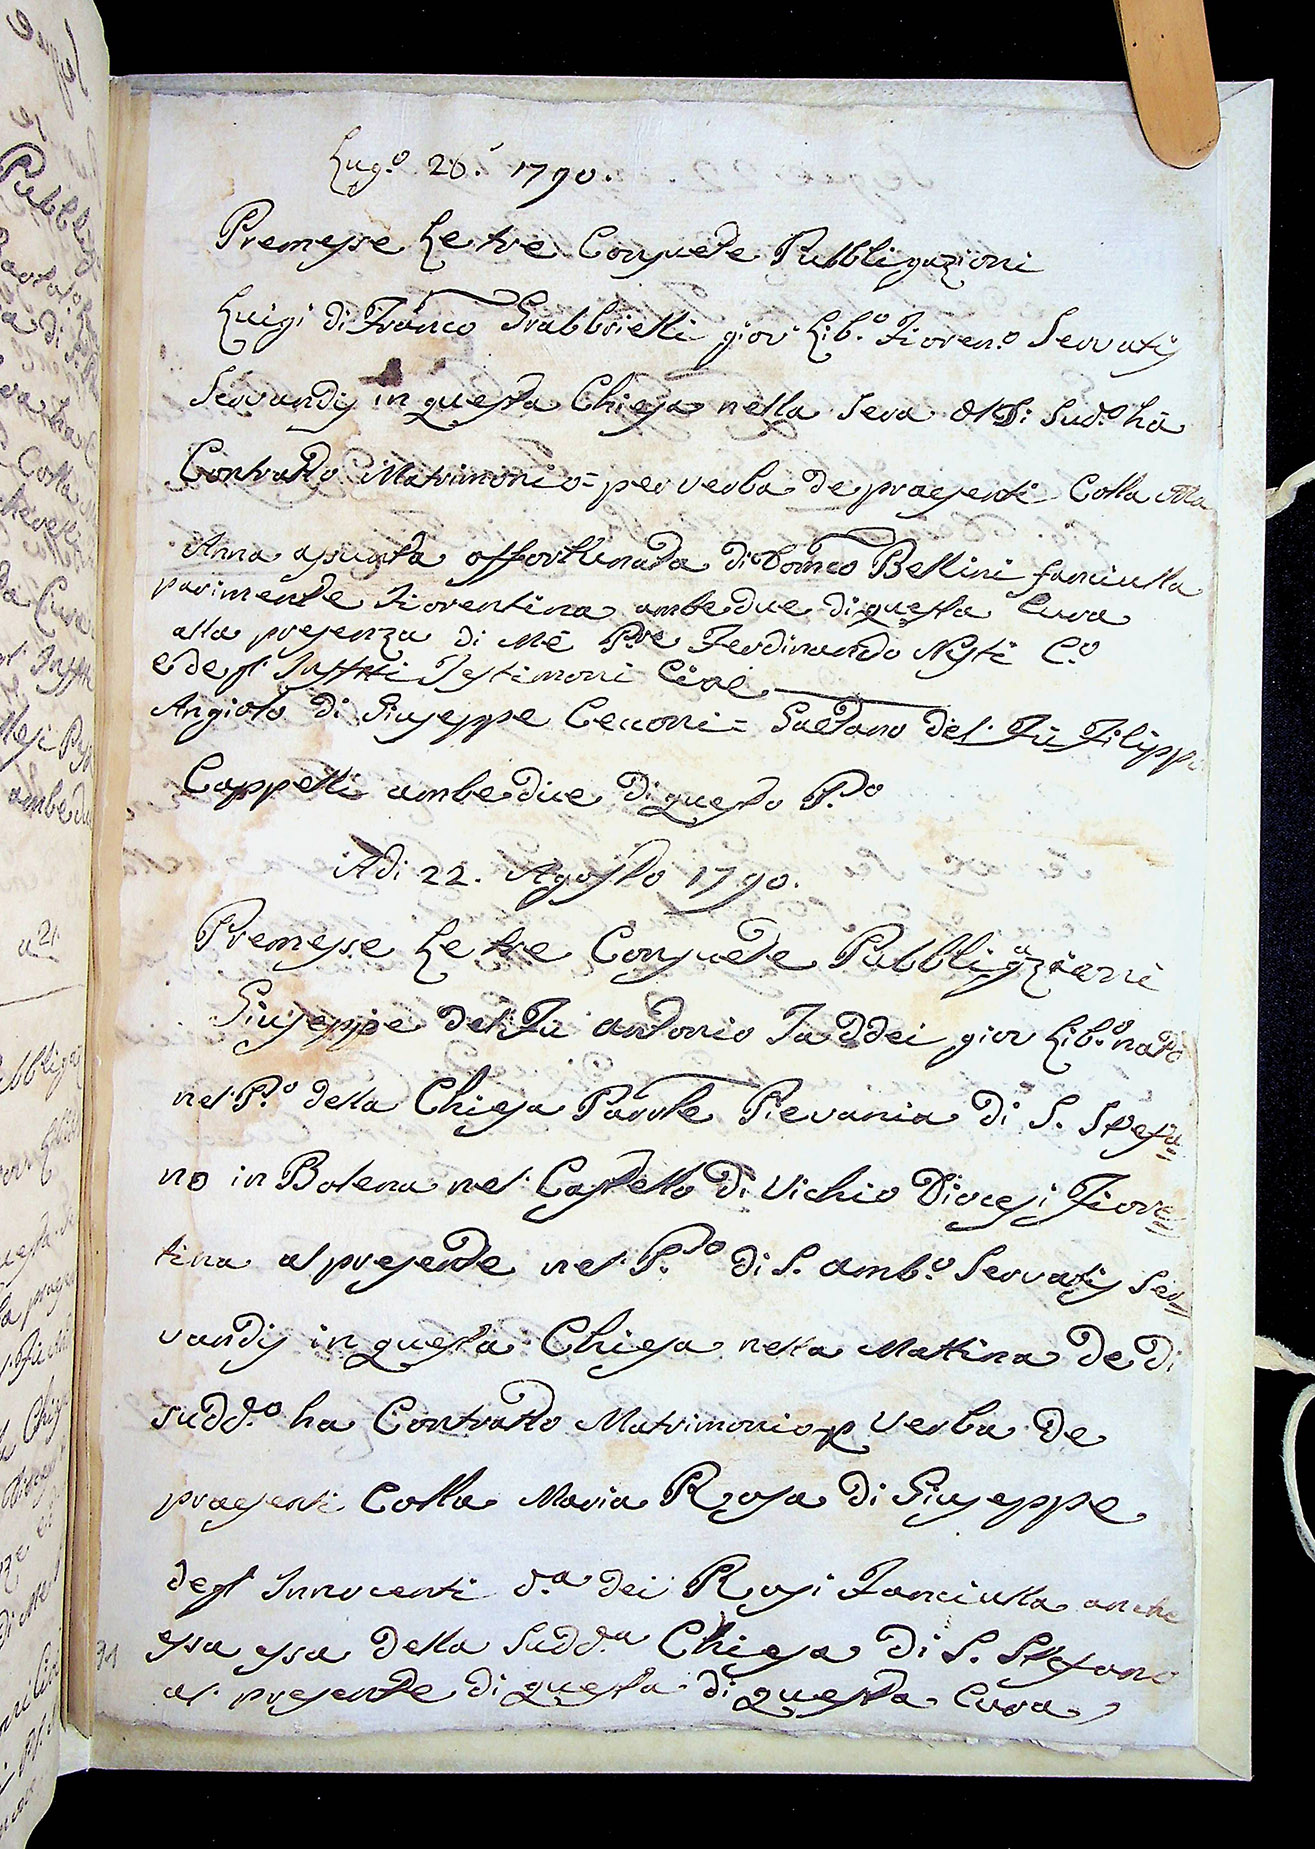 Lug.o 28. 1790.
Premesse Le tre Consuete Pubblicazioni
Luigi di Franco Grabbrielli giov Lib.o Fioren.o Servatis
Servandis in questa Chiesa nella Sera del Dì Sud.o hà
Contratto Matrimonio = per verba de praesenti Colla Ma
Anna assunta affortunata di Domco Bellini fanciulla
parimente Fiorentina ambedue di questa Cura
alla presenza di Mè P.re Ferdinando Nesti C.o
e degl' Infftti Testimoni Cioè
Angiolo di Giuseppe Cecconi = Gaetano del Fù Filippo
Cappelli ambedue di questo P.o
Adi 22. Agosto 1790.
Premesse Le tre Consuete Pubbligazioni
Giuseppe del Fù Antonio Taddei giov Lib.o nato
nel P.o della Chiesa Parrle Pievania di S. Stefa=
no in Botena nel Castello di Vichio Diocesi Fiore=
tina al presente nel P.lo di S. Amb.o Servatis Ser=
vandis in questa Chiesa nella Mattina De Di
sudd.o ha Contratto Matrimonio p Verba De
praesenti Colla Maria Rosa di Giuseppe
degl' Innocenti d.a dei Rosi Fanciulla anche
essa essa della Sudd.a Chiesa di S. Stefano
al presente di questa di questa Cura
31